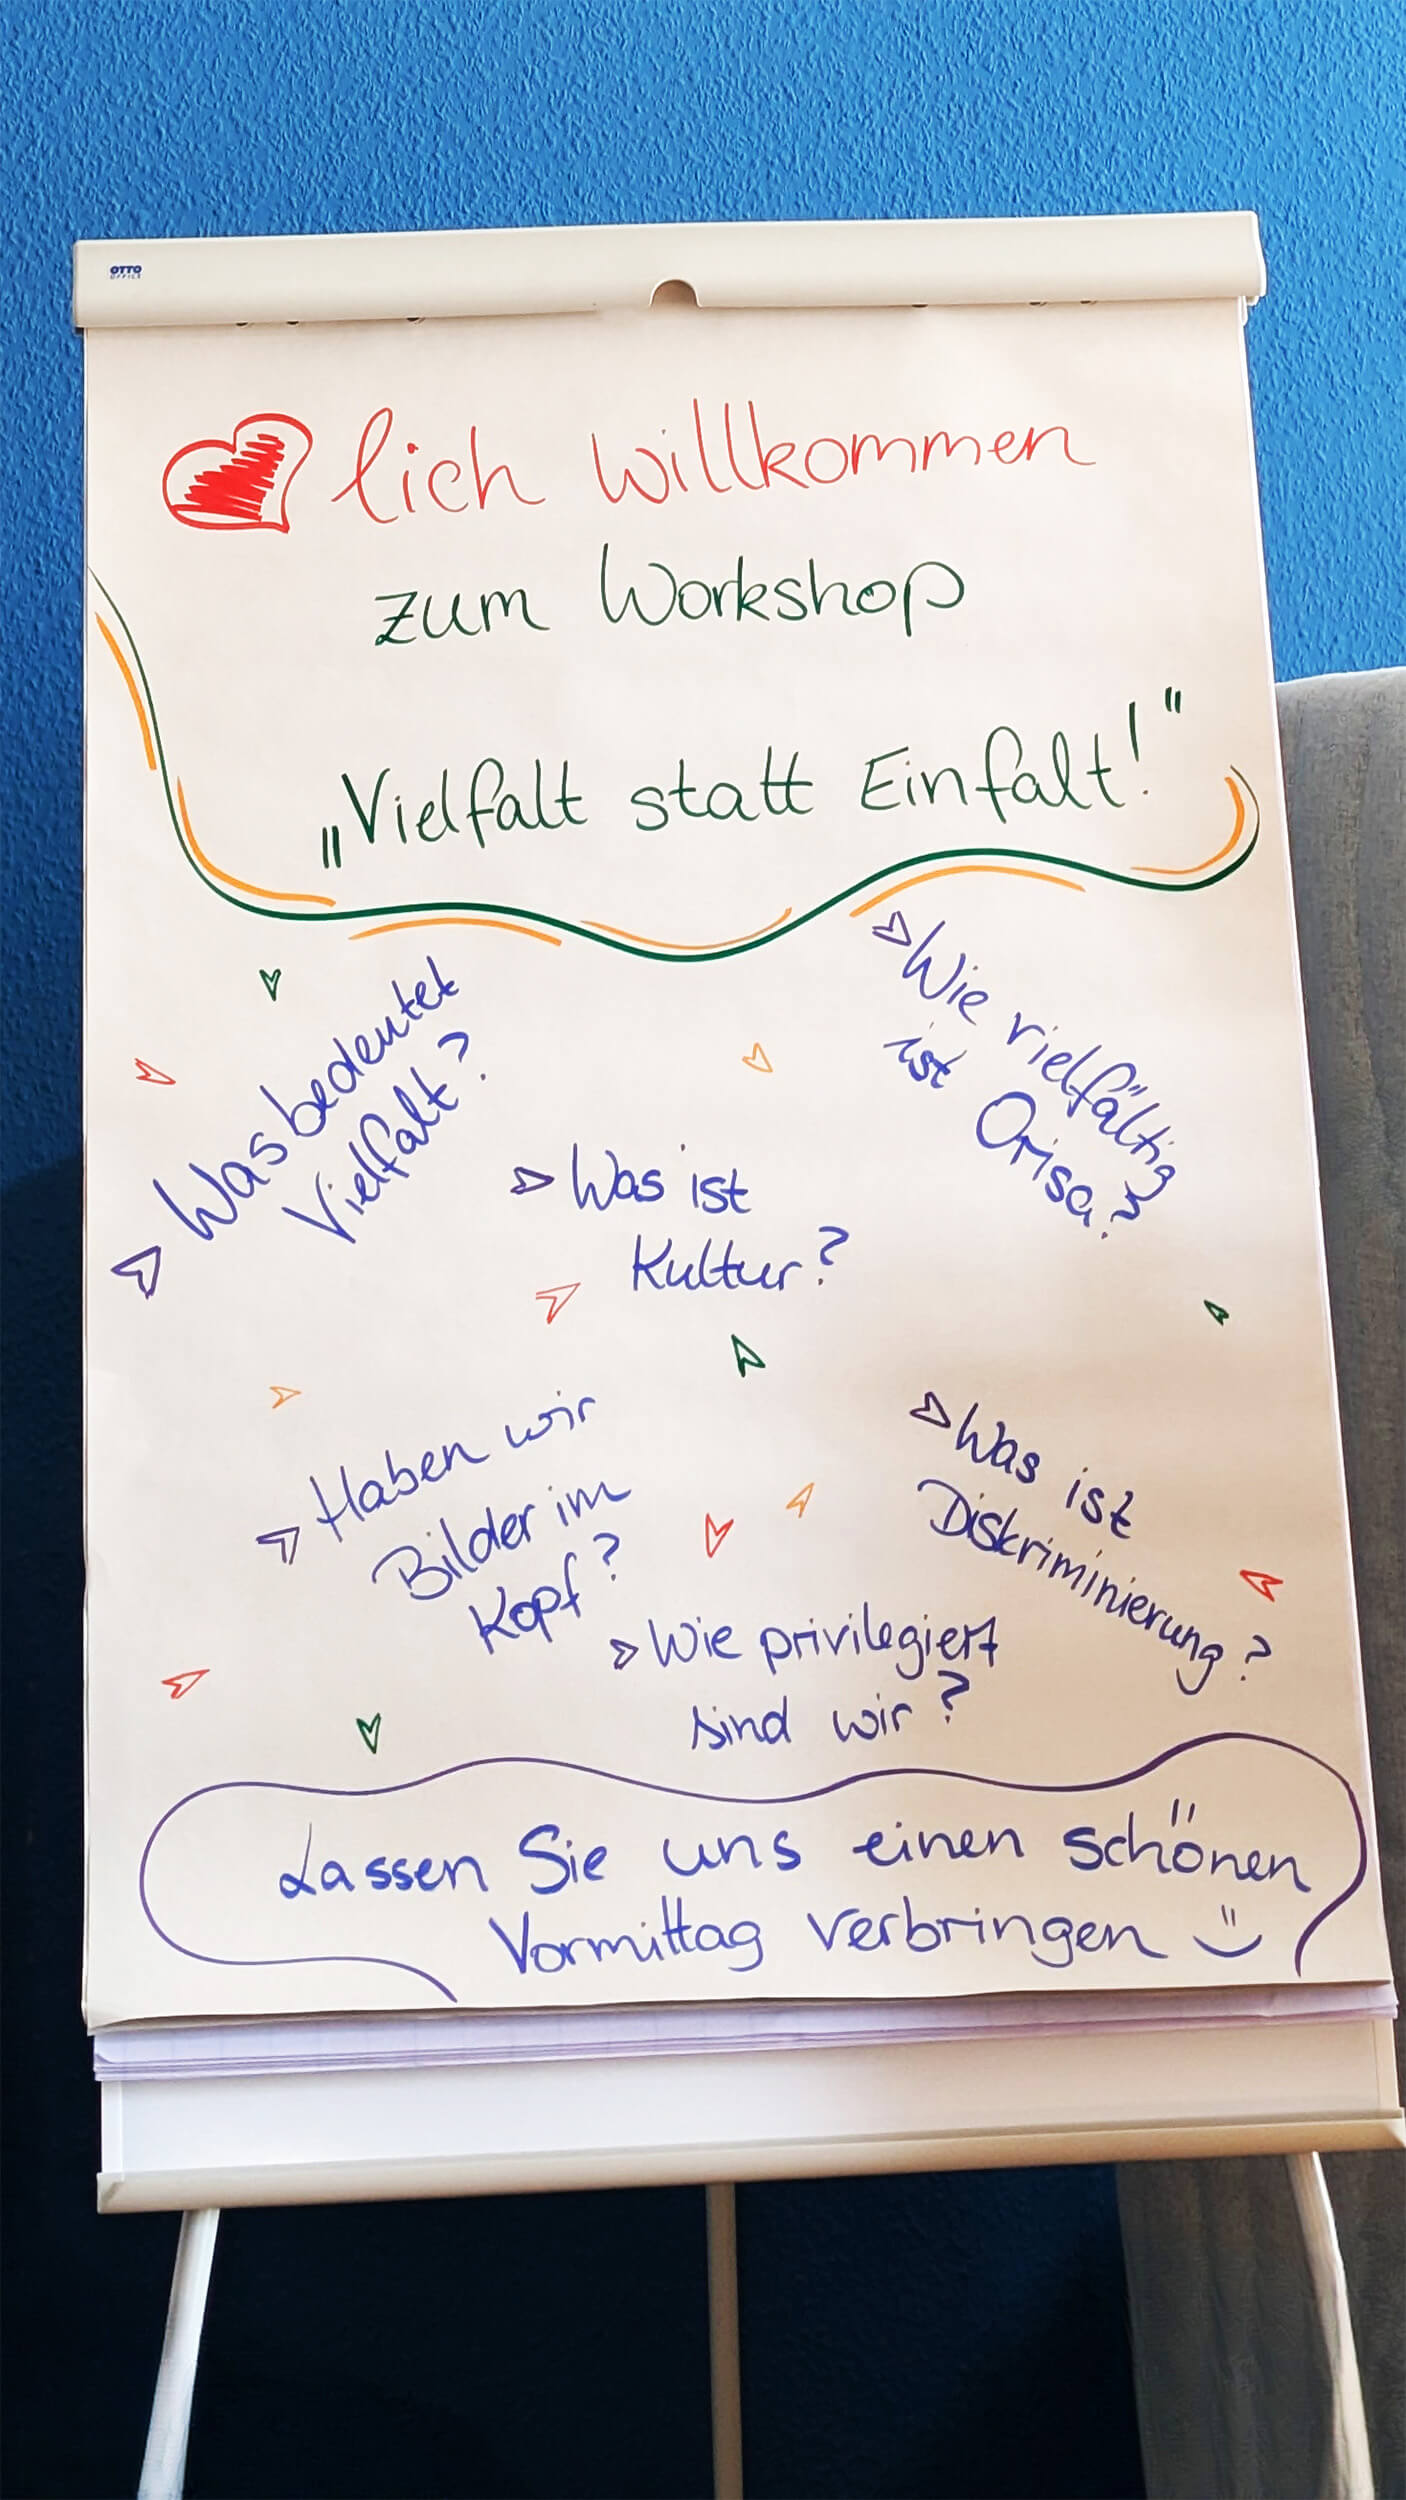 OTTO
OFFICE
lich Willkommen
zum Workshop
„Vielfalt statt Einfalt!"
Was bedeutet
Vielfalt?
Wie vielfältig
ist Orisa?
Was ist
Kultur?
Haben wir
Bilder im
Kopf?
Was ist
Diskriminierung?
Wie privilegiert
sind wir?
Lassen Sie uns einen schönen
Vormittag verbringen